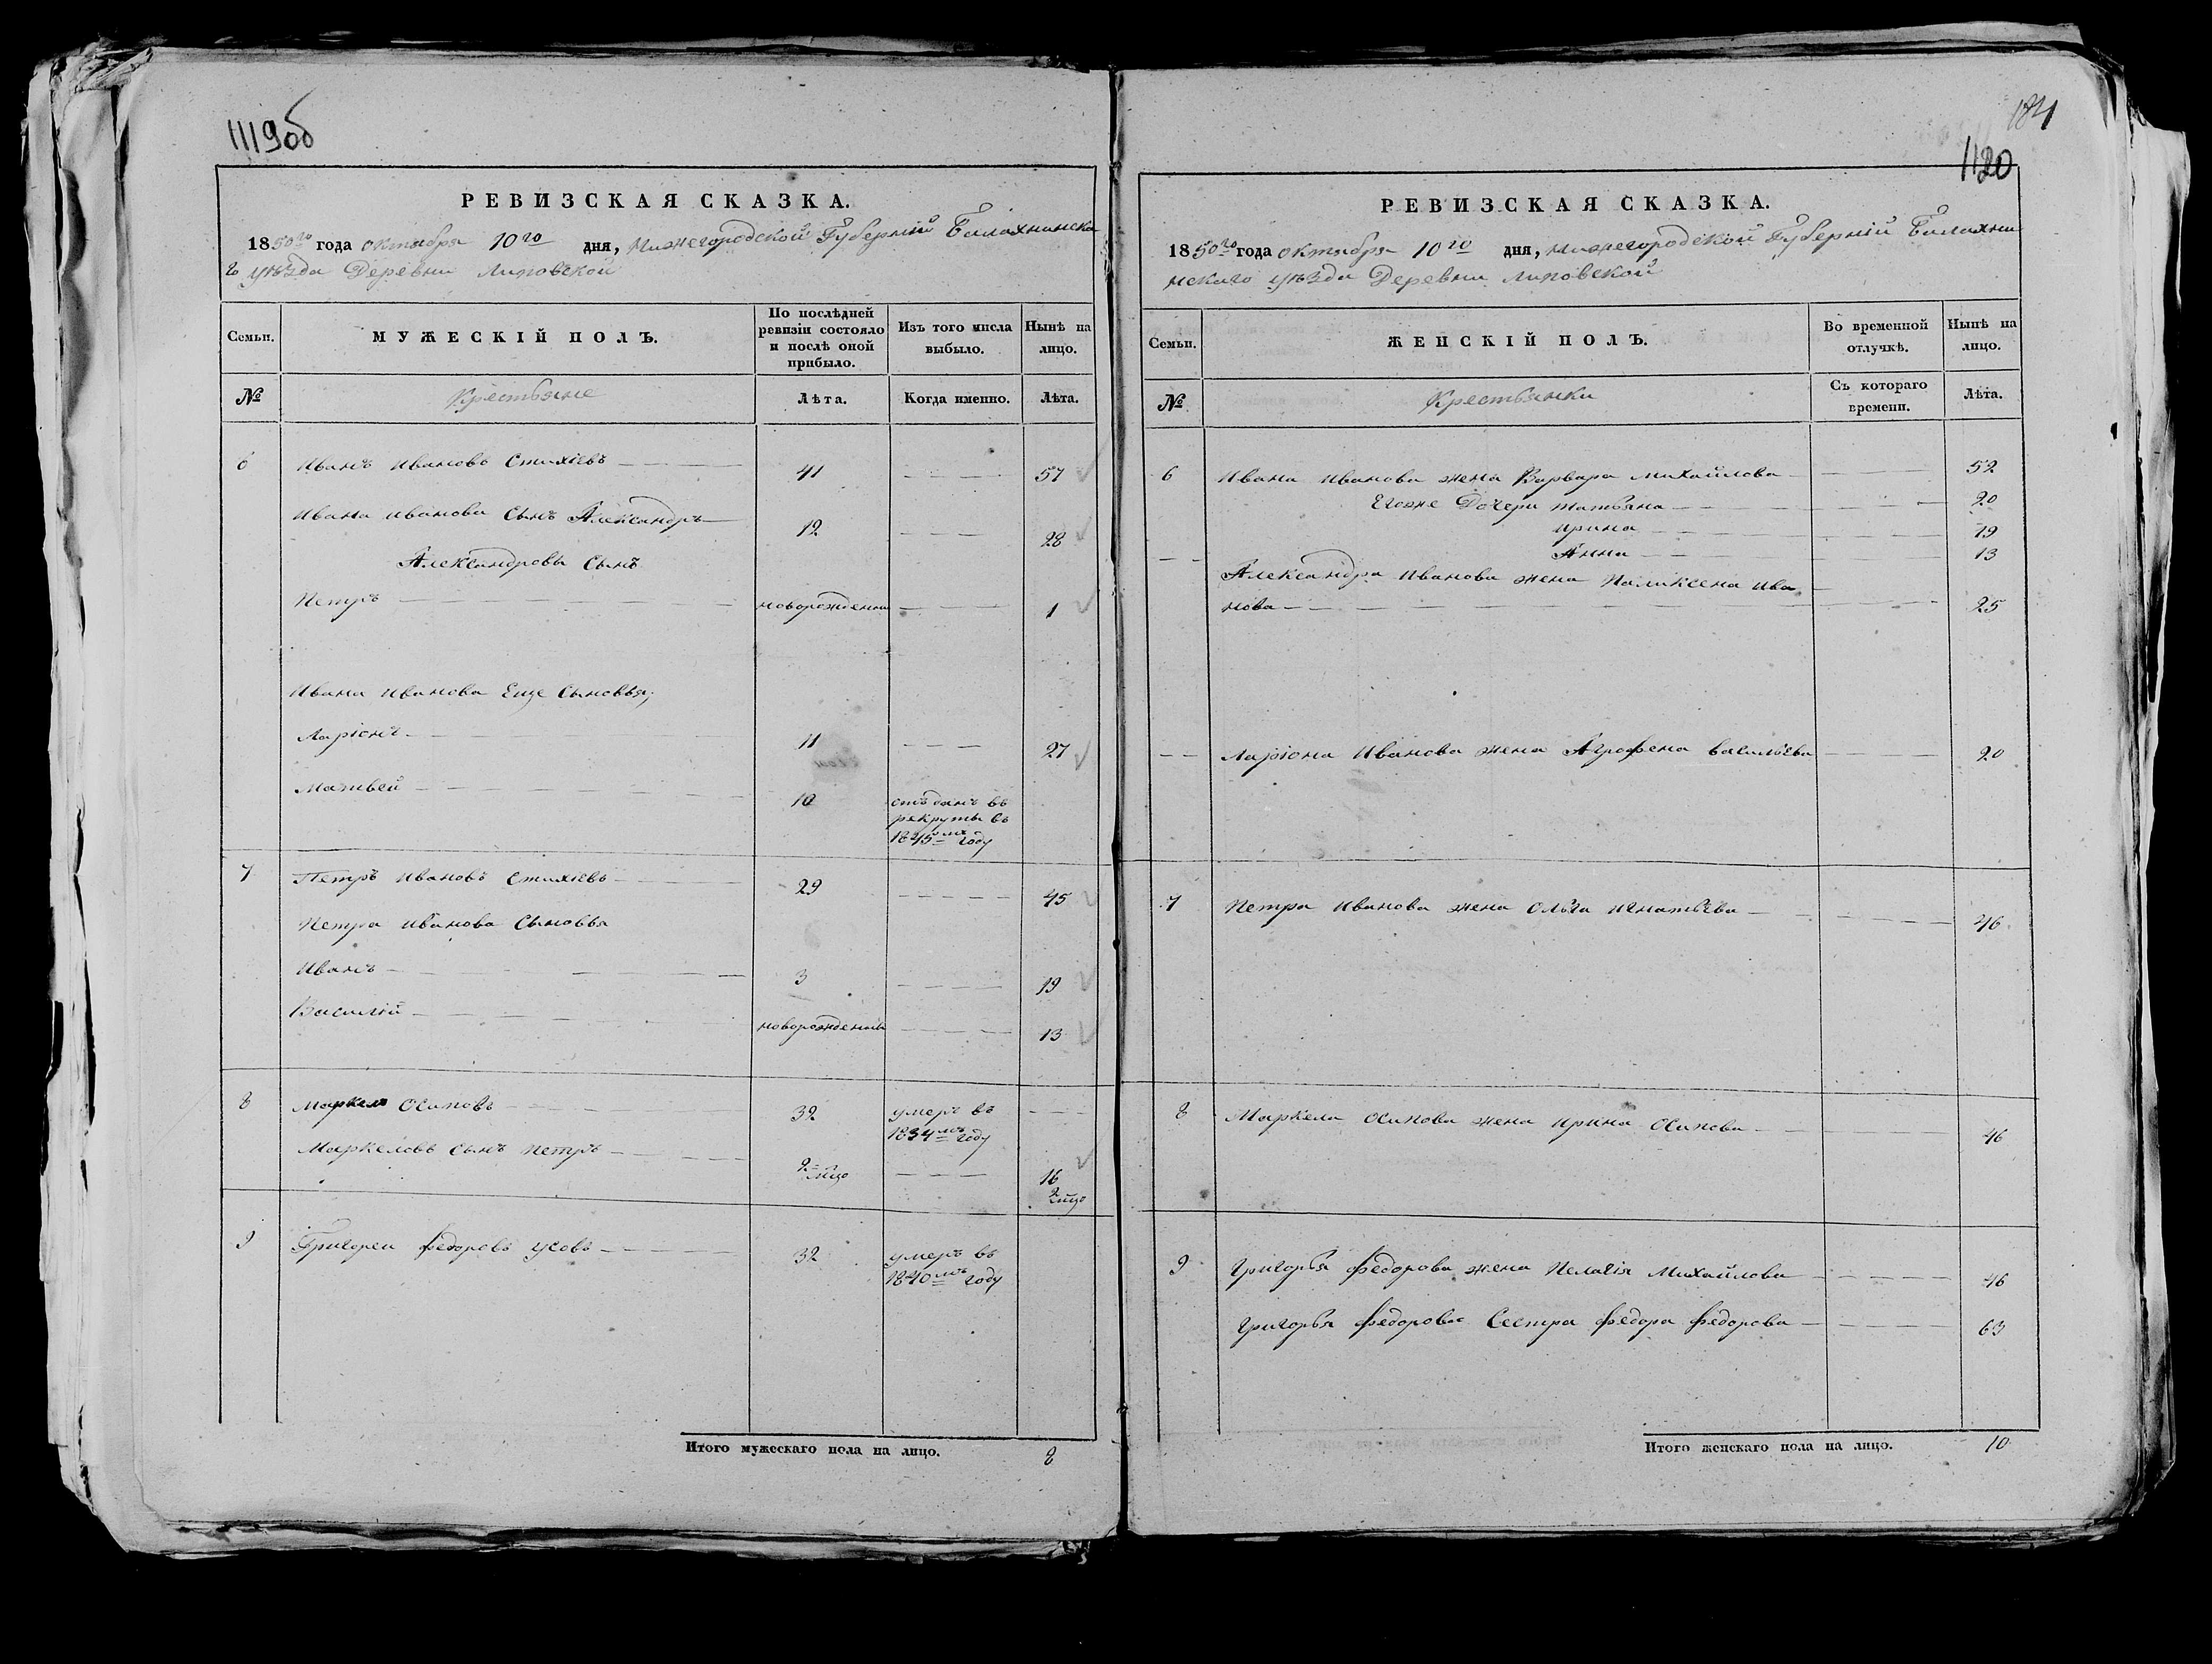 1119об
РЕВИЗСКАЯ СКАЗКА.
1850го года октября 10го дня, Нижегородской Губерніи Балахнинска
го уѣзда Деревни Липовской
Семьи.
МУЖЕСКІЙ ПОЛЪ.
По послѣдней
ревизіи состояло
и послѣ оной
прибыло.
Изъ того числа
выбыло.
Нынѣ на
лицо.
№
Крестьяне
Лѣта.
Когда именно.
Лѣта.
6 Иванъ Ивановъ Стихіевъ 41 57
Ивана Иванова Сынъ Александръ 12 28
Александровъ Сынъ
Петръ новорожденны 1
Ивана Иванова Еще Сыновья;
Ларіонъ 11 27
Матвей 10 отъданъ въ
рекруты въ
1845мъ году
7 Петръ Ивановъ Стихіевъ 29 45
Петра Иванова Сыновья
Иванъ 3 19
Василій новорожденны 13
8 Маркелъ Осиповъ 32 умеръ въ
1834мъ году
Маркеловъ Сынъ Петръ 16
9 Григореи Федоровъ Усовъ 32 умеръ въ
1840мъ году
Итого мужескаго пола на лицо. 8
184
1120
РЕВИЗСКАЯ СКАЗКА.
1850го года октября 10го дня, Нижегородской Губерніи Балахни
нскаго уѣзда Деревни Липовской
Семьи.
ЖЕНСКІЙ ПОЛЪ.
Во временной
отлучкѣ.
Нынѣ на
лицо.
№
Крестьянки
Съ котораго
времени.
Лѣта.
6 Ивана Иванова жена Варвара Михайлова 52
Егоже Дочери Татьяна 20
Ирина 19
Анна 13
Александра Иванова жена Паликсена Ива
нова 25
Ларіона Иванова жена Аграфена Васильева 20
7 Петра Иванова жена Ольга Игнатьева 46
8 Маркела Осипова жена Ирина Осипова 46
9 Григорья Федорова жена Пелагія Михайлова 46
Григорья Федорова Сестра Федора Федорова 63
Итого женскаго пола на лицо. 10